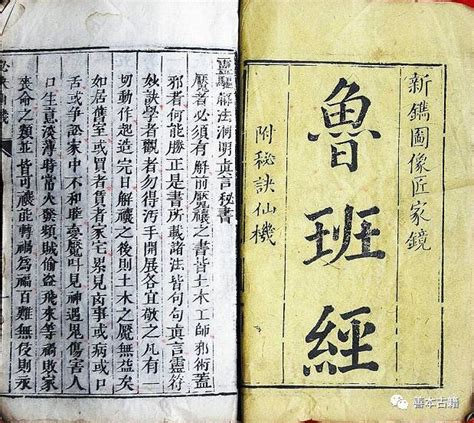 新鐫圖像匠家鏡
魯班經
附秘訣仙機
靈驅解法洞明真言秘書
魘者必須有解前魘禳之書皆土木工師邪術蓋
邪者何能勝正是書所載諸法皆句句真言靈符
妙訣學者觀者勿得汚手開展各宜敬之凡有一
切動作起造完日解禳之後則土木之魘無益矣
如居舊室或買者賃者家宅累見凶事或病或口
舌或爭訟家中不和睡魘叫見神遇鬼傷害人
口生意淡薄時常火發頻賊偷盗飛來等禍敗家
喪命之類並皆可禳能轉禍為福百難無侵則永
善本古籍